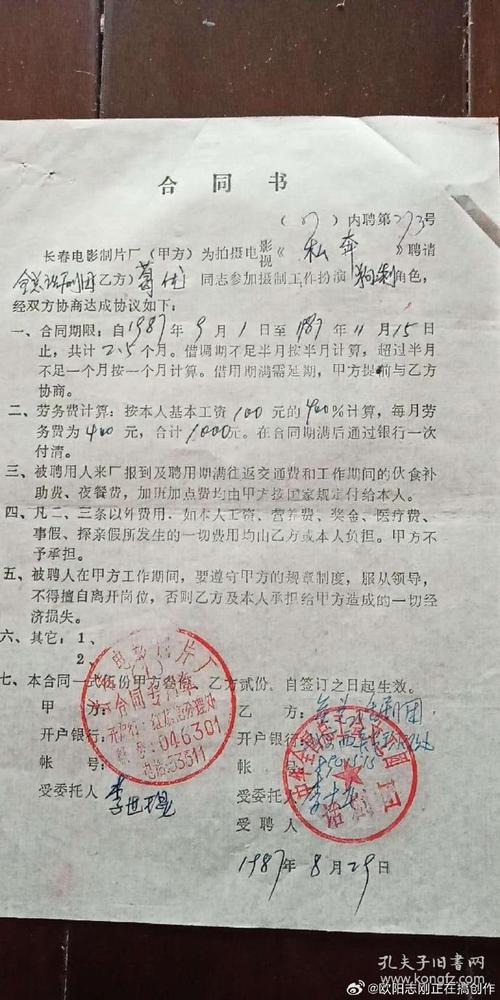 合同书
(87)内聘第273号
长春电影制片厂(甲方)为拍摄电影视《私奔》聘请
全总话剧团(乙方)葛优同志参加摄制工作扮演角色,
经双方协商达成协议如下:
一、合同期限:自1987年9月1日至1987年11月15日
止,共计2.5个月。借调期不足半月按半月计算,超过半月
不足一个月按一个月计算。借用期满需延期,甲方提前与乙方
协商。
二、劳务费计算:按本人基本工资100元的400%计算,每月劳
务费为400元,合计1000元。在合同期满后通过银行一次
付清。
三、被聘用人来厂报到及聘用期满往返交通费和工作期间的伙食补
助费、夜餐费,加班加点费均由甲方按国家规定付给本人。
四、凡二、三条以外费用,如本人工资、营养费、奖金、医疗费、
事假、探亲假所发生的一切费用均由乙方或本人负担。甲方不
予承担。
五、被聘人在甲方工作期间,要遵守甲方的规章制度,服从领导,
不得擅自离开岗位,否则乙方及本人承担给甲方造成的一切经
济损失。
六、其它:1、
2、
七、本合同一式伍份甲方叁份,乙方贰份,自签订之日起生效。
甲方:
开户银行:
帐号:
受委托人
乙方:全总话剧团
开户银行:
帐号:
受委托人
受聘人
长春电影制片厂
合同专用章
开户行:红旗街办理处
帐号:046301
电话:53511
话剧团
1987年8月29日
孔夫子旧书网
www.kongfz.com
@欧阳志刚正在搞创作